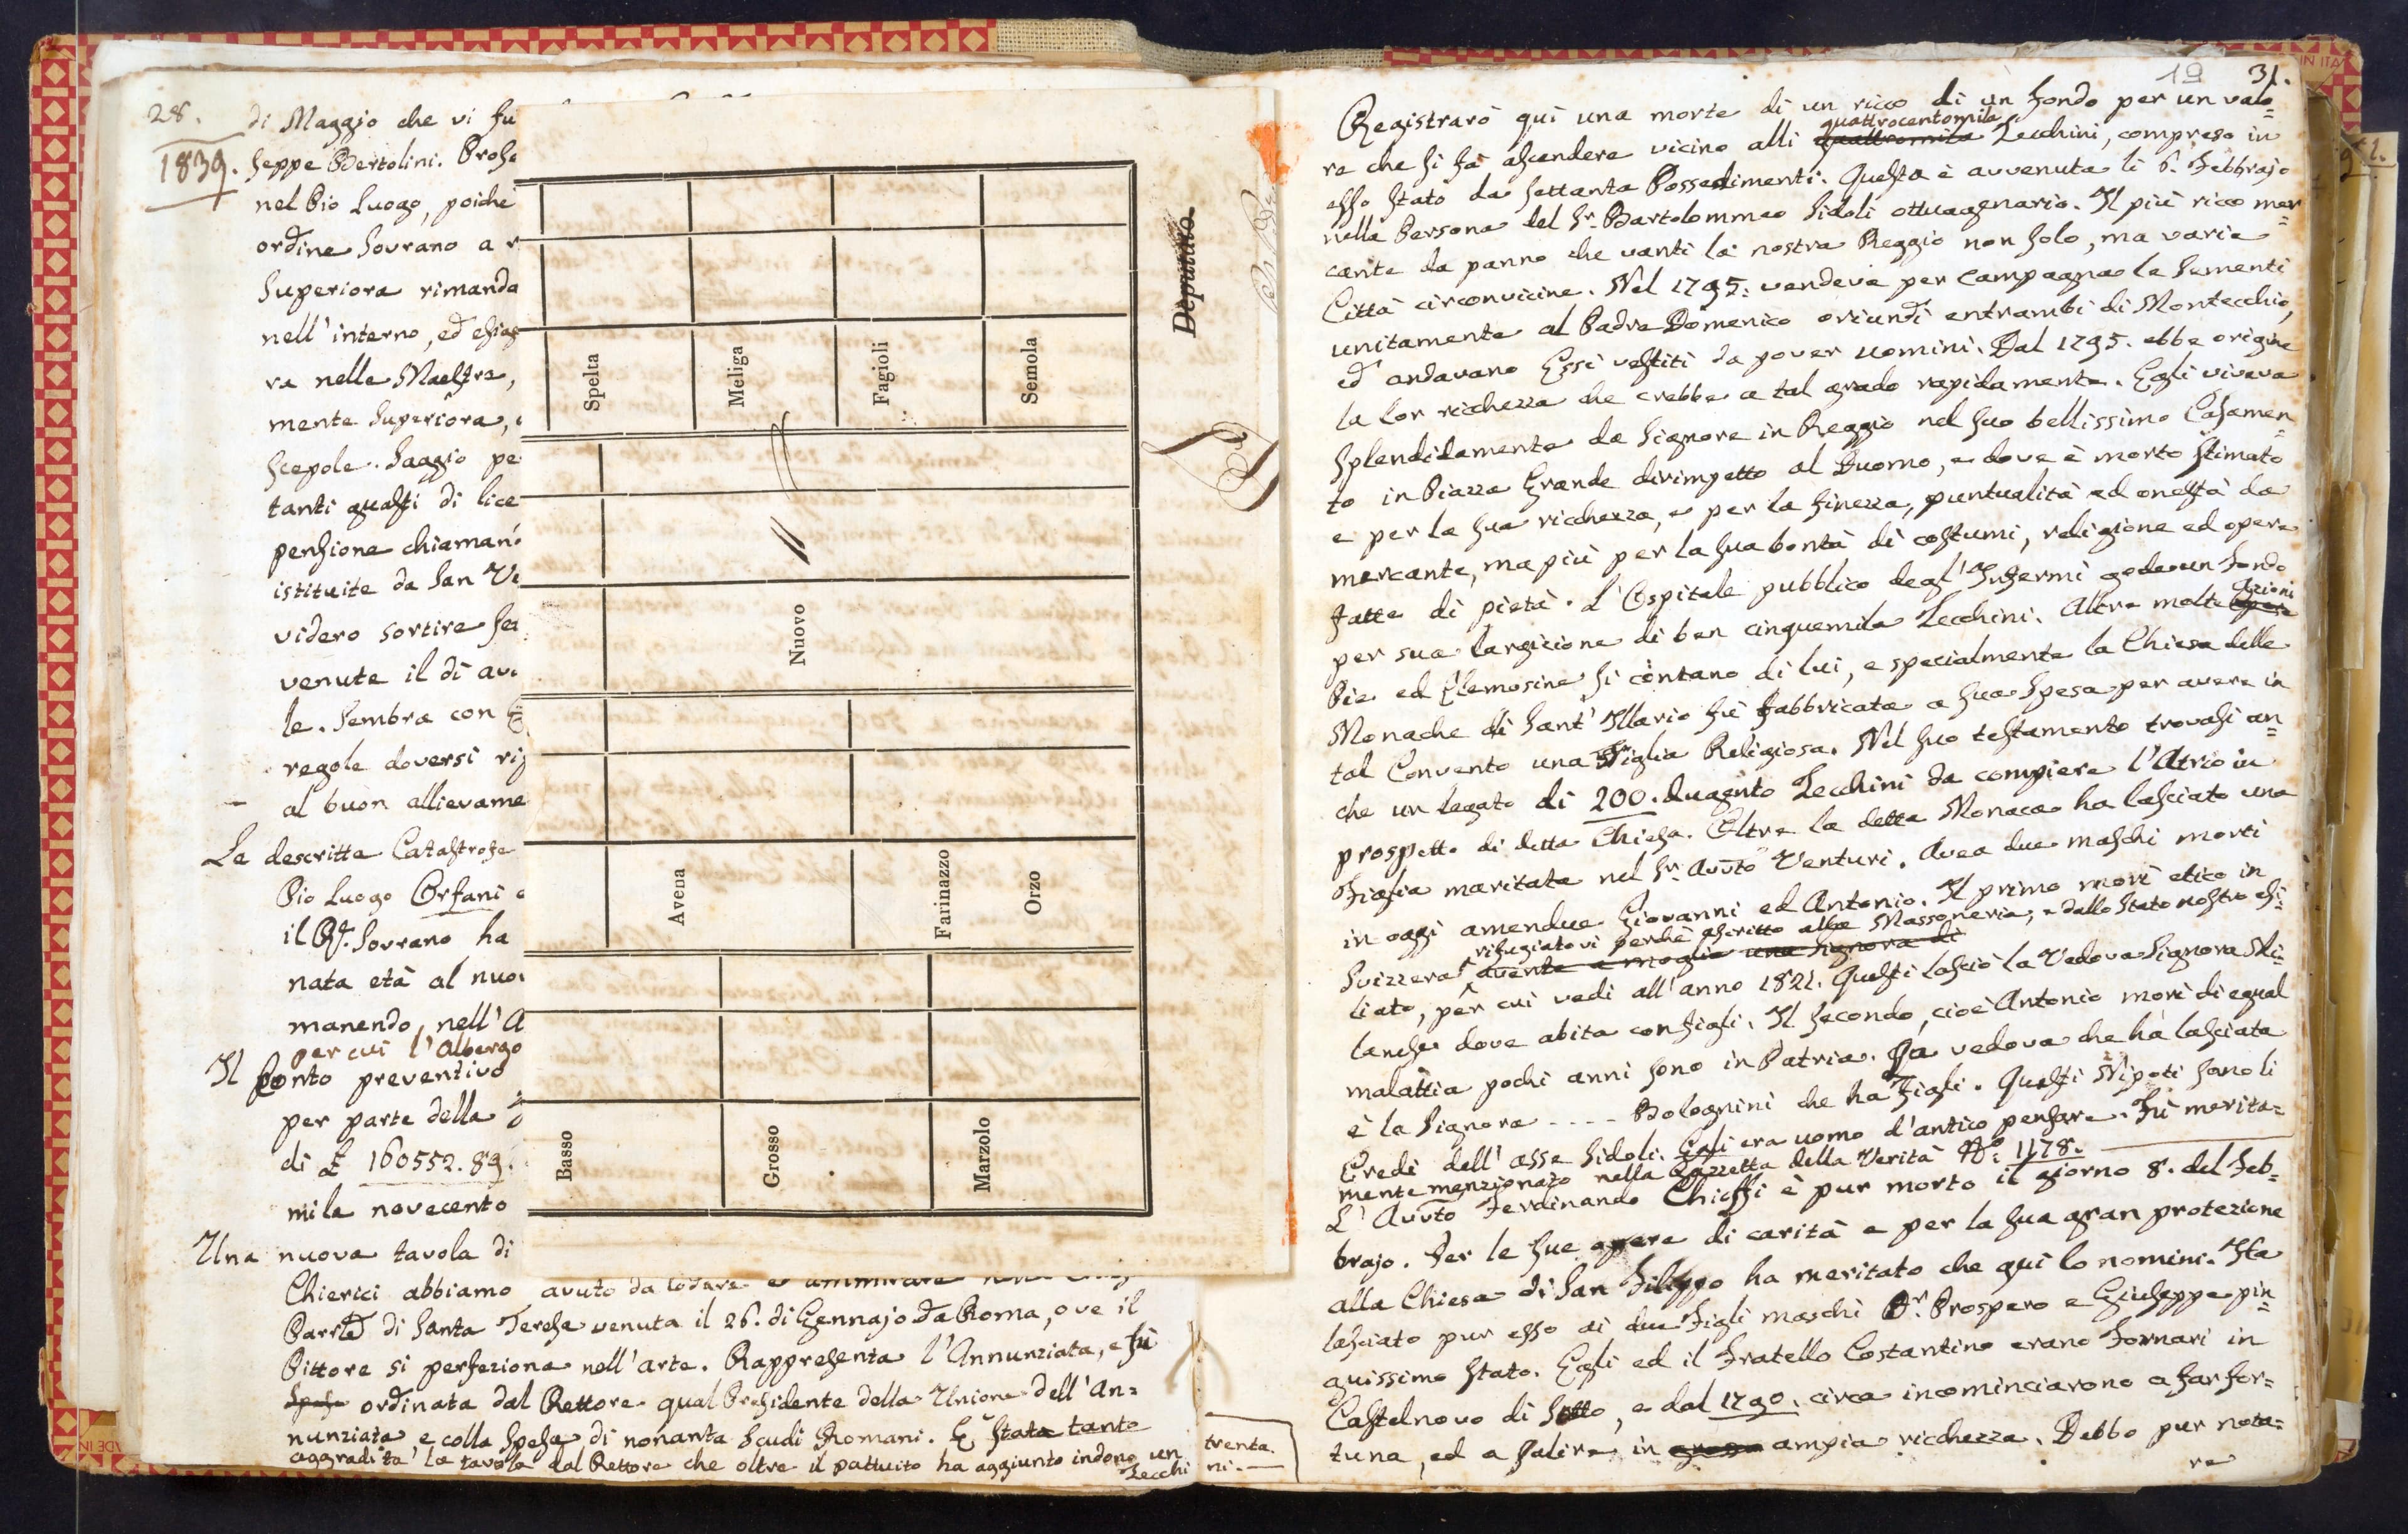 28.
1839.
di Maggio che vi fu
seppe Bertolini. Profe
nel Pio Luogo, poiche
ordine Sovrano a r
Superiora rimanda
nell'interno, ed esiag
ra nelle Maestre,
mente Superiora,
scepole. Saggio pe
tanti guasti di lice
pensione chiaman
istituite da San Vi
videro sortire se
venute il dì av
le. Sembra con
regole doversi ri
al buon allievame
La descritta Catastrofe
Pio Luogo Orfani
il R. Sovrano ha
nata età al nuo
manendo, nell'A
per cui l'Albergo
Il Conto preventivo
per parte della
di £ 160552.89.
mila novecento
Una nuova tavola di
Chierici abbiamo avuto da lodare e ammirare nella
Parr. di Santa Teresa venuta il 26. di Gennajo da Roma, ove il
Pittore si perfeziona nell'arte. Rappresenta l'Annunziata, e fù
spesa ordinata dal Rettore qual Presidente della Unione dell'An=
nunziata, e colla spesa di nonanta Scudi Romani. È stata tanto
aggradita la tavola dal Rettore che oltre il pattuito ha aggiunto in dono un
Zecchi
trenta
ni.
Spelta
Meliga
Fagioli
Semola
Nuovo
Avena
Farinazzo
Orzo
Basso
Grosso
Marzolo
Deputato
19 31.
Registrarò quì una morte di un ricco di un fondo per un valo=
quattrocentomila
re che si fà ascendere vicino alli quattromila Zecchini, compreso in
esso stato da settanta Possedimenti. Questa è avvenuta li 6. Febbrajo
nella Persona del Sr. Bartolommeo Sidoli ottuagenario. Il più ricco mer=
cante da panno che vanti la nostra Reggio non solo, ma varie
Città circonvicine. Nel 1795: vendeva per Campagna le Sementi
unitamente al Padre Domenico oriundi entrambi di Montecchio,
ed andavano Essi vestiti da pover uomini. Dal 1795. ebbe origine
la lor ricchezza che crebbe a tal grado rapidamente. Egli viveva
splendidamente da Signore in Reggio nel suo bellissimo Casamen=
to in Piazza Grande dirimpetto al Duomo, e dove è morto stimato
e per la sua ricchezza, e per la finezza, puntualità ed onestà da
mercante, ma più per la sua bontà di costumi, religione ed opere
fatte di pietà. L'Ospitale pubblico degl'Infermi gode un fondo
per sua largizione di ben cinquemila Zecchini. Altre molte opere
azioni
Pie ed Elemosine si contano di lui, e specialmente la Chiesa delle
Monache di Sant'Illario fù fabbricata a sua spesa per avere in
tal Convento una Figlia Religiosa. Nel suo testamento trovasi an=
che un legato di 200. duagento Zecchini da compiere l'Atrio in
prospetto di detta Chiesa. Oltre la detta Monaca ha lasciato una
Figlia maritata nel Sr. Avvto Venturi. Avea due maschi morti
in oggi amendue Giovanni ed Antonio. Il primo morì etico in
rifugiatovi perchè ascritto alla Massoneria, e dallo Stato nostro esi=
Svizzera avente a moglie una Signora di
liato, per cui vedi all'anno 1821. Questi lasciò la Vedova Signora Mi=
lanese dove abita con figli. Il secondo, cioè Antonio morì di egual
malattia pochi anni sono in Patria. La vedova che hà lasciata
è la Signora .... Bolognini che ha Figli. Questi Nipoti sono li
Eredi dell'asse Sidoli. Egli era uomo d'antico pensare. Fù merita=
mente menzionato nella Gazzetta della Verità No: 1178.
L'Avvto Ferdinando Chiessi è pur morto il giorno 8. del Feb=
brajo. Per le sue opere di carità e per la sua gran protezione
alla Chiesa di San Filippo ha meritato che quì lo nomini. Ha
lasciato pur esso ai due Figli maschi Dr. Prospero e Giuseppe pin=
guissimo stato. Egli ed il Fratello Costantino erano Fornari in
Castelnovo di Sotto, e dal 1790. circa incominciarono a far for=
tuna, ed a salire in ampia ricchezza. Debbo pur nota=
re